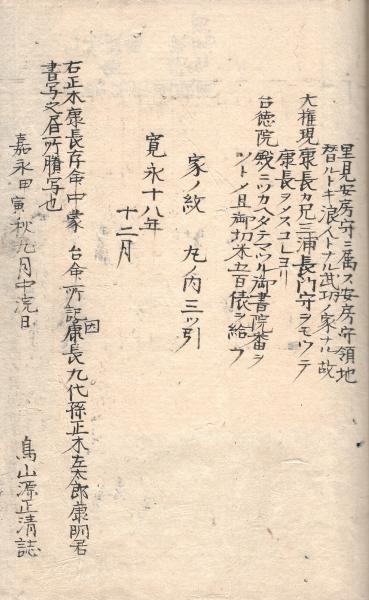 里見安房守ニ属ス安房守領地
替ルトキ浪人トナル武功ノ家ナル故
大権現康長カ兄三浦長門守ヲモツテ
康長ヲメスコレヨリ
台徳院殿ニツカヘタテマツル御書院番ヲ
ツトメ且御切米五百俵ヲ給フ
家ノ紋 丸ノ内三ツ引
寛永十八年
十二月
右正木康長存命中蒙 台命所記康長九代孫正木左太郎康明君
因
書写之居所謄写也
嘉永甲寅秋九月中浣日 鳥山源正清誌